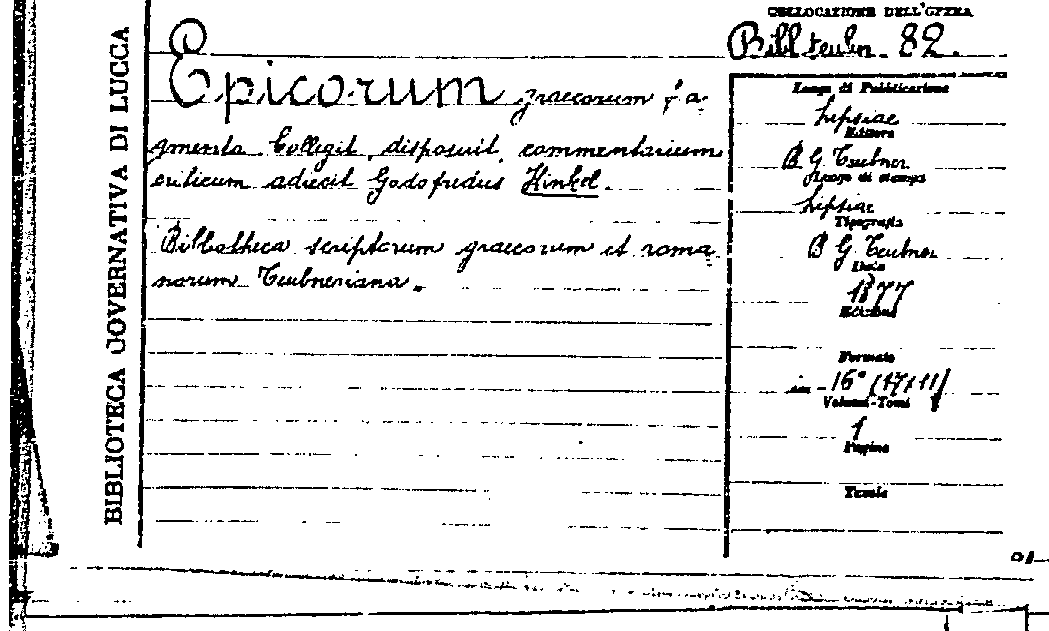 BIBLIOTECA GOVERNATIVA DI LUCCA
COLLOCAZIONE DELL'OPERA
Bibl. teubn. 82.
Epicorum graecorum fra-
gmenta Collegit, disposuit, commentarium
criticum adiecit Godofredus Kinkel.
Bibliotheca scriptorum graecorum et roma
norum Teubneriana.
Luogo di Pubblicazione
Lipsiae
Editore
B G Teubner
Luogo di stampa
Lipsiae
Tipografia
B G Teubner
Data
1877
Edizione
Formato
in-16° (17×11)
Volumi-Tomi
1
Pagine
Tavole